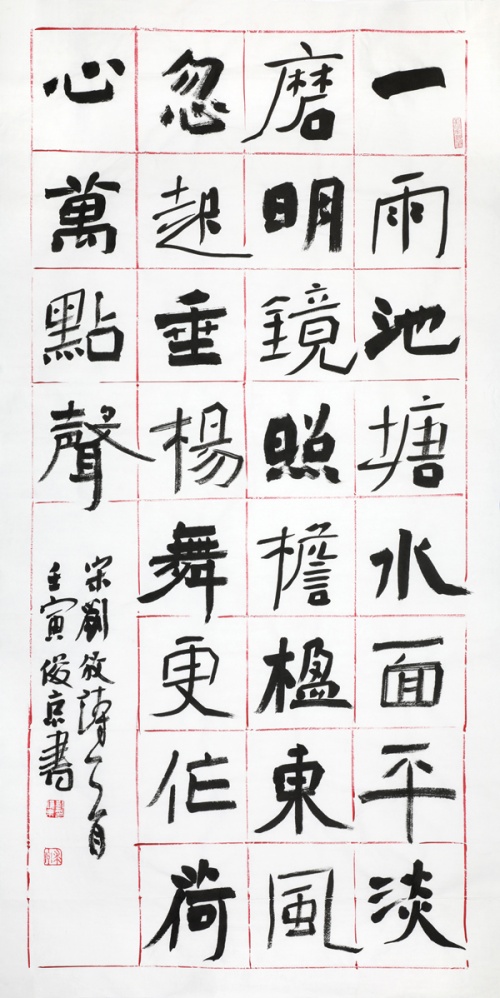 一雨池塘水面平淡
磨明鏡照檐楹東風
忽起垂楊舞更作荷
心萬點聲
宋劉攽詩一首
壬寅俊京書